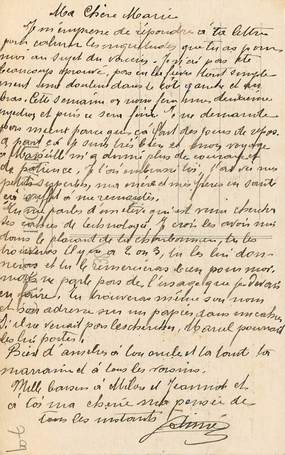 Ma Chère Marie
Je m'empresse de répondre à ta lettre
pour calmer les inquiétudes que tu as pour
moi au sujet du vaccin. Je n'ai pas été
beaucoup éprouvé, pas eu de fièvre tout simple
ment une douleur dans le coté gauche et au
bras. Cette semaine on nous fera une deuxième
et puis ce sera finie. Je ne demande
pas mieux parce que ça fait des jours de repos.
a part ça je suis très bien et mon voyage
à Marseille m'a donné plus de courage et
de patience. Je t'ai
ma mère et mes frères en santé
Tu me parles d'un qui est venu chercher
des de technologie. Je crois les avoir mis
dans le placard de la charbonnière, tu les
trouveras il y en a 2 ou 3, tu les lui don-
neras et tu le remercieras bien pour moi,
mais ne parle pas de l'usage que je devais
en faire. tu trouveras même son nom
et son adresse sur un papier dans une
S'il ne venait pas les chercher, Marcel pourrait
les lui porter.
Bien d'amitiés à ton oncle et ta tante ta
marraine et à tous les voisins.
Mille baisers à Milou et Jeannot et
à toi ma chérie ma pensée de
tous les instants